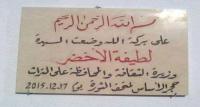 بسم الله الرحمن الرحيم
على بركة الله وضعت السيدة
لطيفة الأخضر
وزيرة الثقافة والمحافظة على التراث
حجر الأساس لمتحف الثورة يوم 2015.12.17